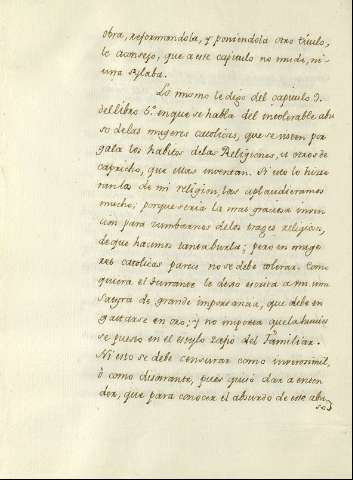 obra, reformandola, y poniendola otro titulo,
le aconsejo, que a este capitulo no mude, ni
una sylaba.
Lo mismo le digo del capitulo 9.
del libro 6.º en que se habla del intolerable abu
so de las mugeres catolicas, que se visten por
gala los habitos de las Religiones, u otros de
capricho, que ellas inventan. Si esto lo hicie
ran las de mi religion, las aplaudieramos
mucho; porque seria la mas graciosa inven
cion para zumbarnos de los trages religion,
de que hacemos tanta burla; pero en muge
res catolicas parece no se debe tolerar. Como
quiera el Farsante le dexo escrita a mi una
satyra de grande importancia, que debe en
gastarse en oro; y no importa que la huvie
se puesto en el estylo zafio del Familiar.
Ni esto se debe censurar como inverosimil,
ò como disonante, pues quiso dar a enten
der, que para conocer el absurdo de este abu
so